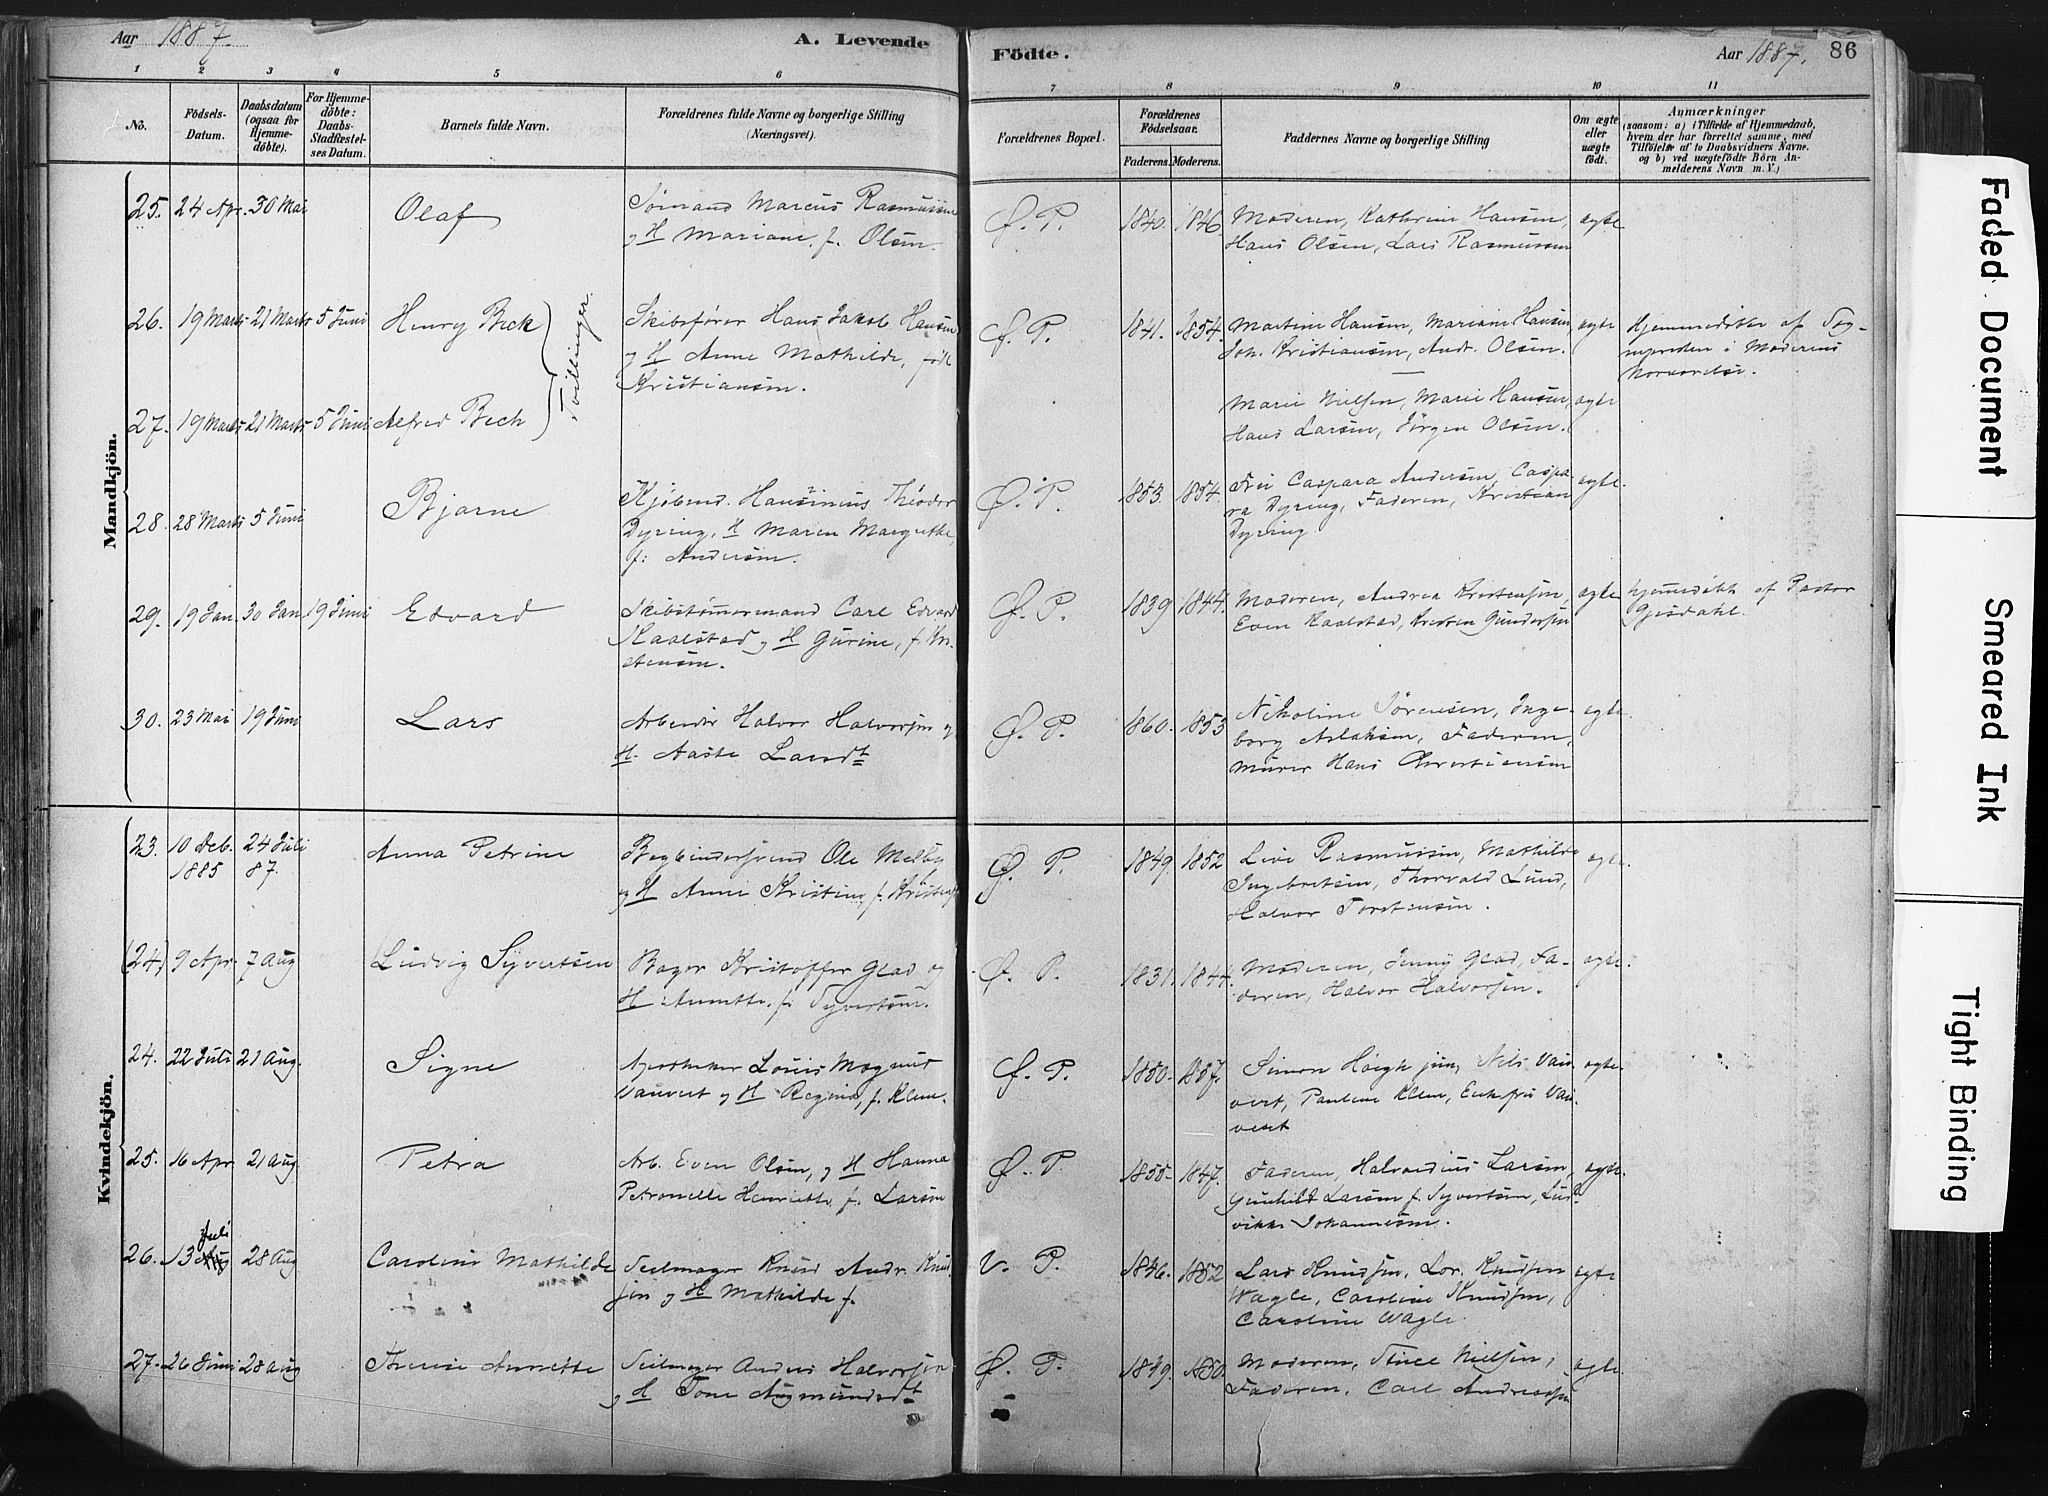 Aar 1887.
A. Levende
Födte.
Aar 1887.
86
1 2 3 4 5 6 7 8 9 10 11
No.
Födsels-
Datum.
Daabsdatum
(ogsaa for
Hjemme-
døbte).
For Hjemme-
døbte:
Daabs-
Stadfæstel-
ses Datum.
Barnets fulde Navn.
Forældrenes fulde Navne og borgerlige Stilling
(Næringsvei).
Forældrenes Bopæl.
Forældrenes
Födselsaar.
Faderens. Moderens.
Faddernes Navne og borgerlige Stilling
Om ægte
eller
uægte
födt.
Anmærkninger
(saasom: a) i Tilfælde af Hjemmedaab,
hvem der har forrettet samme, med
Tilföielse af to Daabsvidners Navne.
og b) ved uægtefödte Börn An-
melderens Navn m. V.)
Mandkjön.
25. 24 Apr. 30 Mai
Olaf
Sømand Marcus Rasmussen
og H Mariane, f. Olsen.
Ø. P.
1840. 1846.
Moderen, Kathrine Hansen,
Hans Olsen, Lars Rasmussen
ægte
26. 19 Marts 21 Marts 5 Juni
Henry Beck
Tvillinger.
Skibsfører Hans Jakob Hansen
og H Anne Mathilde, født
Kristiansen.
Ø. P.
1841. 1854.
Martine Hansen, Mariane Hansen,
Joh. Kristiansen, Andr. Olsen.
ægte
Hjemmedøbte af Sog-
nepræsten i Moderens
Nærværelse.
27. 19 Marts 21 Marts 5 Juni
Alfred Bech
Marie Nielsen, Marie Hansen,
Hans Larsen, Jørgen Olsen.
ægte
28. 28 Marts 5 Juni
Bjarne
Kjøbmd. Hansinius Theodor
Dyring, H Maren Margrethe,
f. Andersen.
Ø. P.
1853. 1854.
Fru Caspara Andersen, Caspa-
ra Dyring, Faderen, Kristian
Dyring
ægte.
29. 19 Jan. 30 Jan. 19 Juni
Edvard
Skibstømmermand Carl Edvard
Kaalstad og H Gurine, f.
Ø. P.
1839. 1844.
Moderen, Andrea Kristensen,
Even Kaalstad, Kristen Gundersen
ægte
hjemmedøbt af Pastor
Gjesdahl.
30. 23 Mai 19 Juni
Lars
Arbeider Halvor Halvorsen og
H. Aaste Larsdt
Ø. P.
1860. 1853
Nikoline Sørensen, Inge-
borg Aslaksen, Faderen,
Murer Hans Christiansen
ægte.
Kvindekjön.
23. 10 Deb. 1885 24 Juli 87.
Anna Petrine
Bogbindersvend Ole Melby
og H Anne Kristine, f. Kristensen
Ø. P.
1849. 1852
Live Rasmussen, Mathilde
Ingebretsen, Thorvald Lund,
Halvor Torstensen.
ægte.
(24) 9 Apr. 7 Aug
(Ludvig Syvertsen
Bager Kristoffer Glad og
H Annette, f. Syvertsen.
Ø. P.
1831. 1844.
Moderen, Jenny Glad, Fa-
deren, Halvor Halvorsen.
ægte.
24. 22 Juli 21 Aug.
Signe
Apotheker Louis Magnus
Vauvert og H Regine, f. Klem.
Ø. P.
1850. 1857.
Simon Høigh jun, Nils Vau-
vert, Pauline Klem, Enkefru Vau-
vert
ægte.
25. 16 Apr. 21 Aug.
Petra
Arb. Even Olsen, og H Hanna
Petronelle Henriette, f. Larsen
Ø. P.
1855. 1847.
Faderen, Halvardius Larsen,
Gunhild Larsen f. Syvertsen, Lud-
vikke Johannesen.
ægte.
26. 13 Juli 28 Aug
Caroline Mathilde
Seilmager Knud Andr. Knud-
sen og H Mathilde f.
V. P.
1846. 1852
Lars Knudsen, Lor. Knudsen
Wagle, Caroline Knudsen,
Caroline Wagle.
ægte
27. 26 Juni 28 Aug
Therese Annette
Seilmager Anders Halvorsen
og H Tone Augmundsdt
Ø. P.
1849. 1850.
Moderen, Nielsen,
Faderen, Carl Andreassen
ægte.
Faded Document
Smeared Ink
Tight Binding